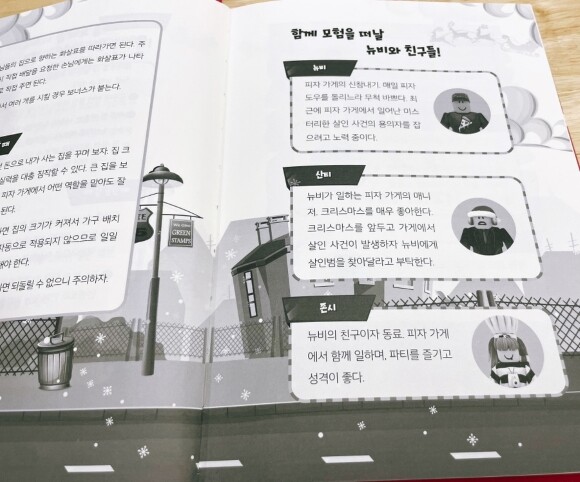 손님들의 집으로 향하는 화살표를 따라가면 된다. 주
직접 배달을 요청한 손님에게는 화살표가 나타
로 직접 주면 된다.
서 여러 개를 시킬 경우 보너스가 붙는다.
때
돈으로 내가 사는 집을 꾸며 보자. 집 크
실력을 대충 짐작할 수 있다. 큰 집을 보
피자 가게에서 어떤 역할을 맡아도 잘
된다.
면 집의 크기가 커져서 가구 배치
자동으로 적용되지 않으므로 일일
해야 한다.
면 되돌릴 수 없으니 주의하자.
GREEN
STAMPS
함께 모험을 떠날
뉴비와 친구들!
뉴비
피자 가게의 신참내기. 매일 피자
도우를 돌리느라 무척 바쁘다. 최
근에 피자 가게에서 일어난 미스
터리한 살인 사건의 용의자를 잡
으려고 노력 중이다.
산비
뉴비가 일하는 피자 가게의 매니
저. 크리스마스를 매우 좋아한다.
크리스마스를 앞두고 가게에서
살인 사건이 발생하자 뉴비에게
살인범을 찾아달라고 부탁한다.
쫀시
뉴비의 친구이자 동료. 피자 가게
에서 함께 일하며, 파티를 즐기고
성격이 좋다.